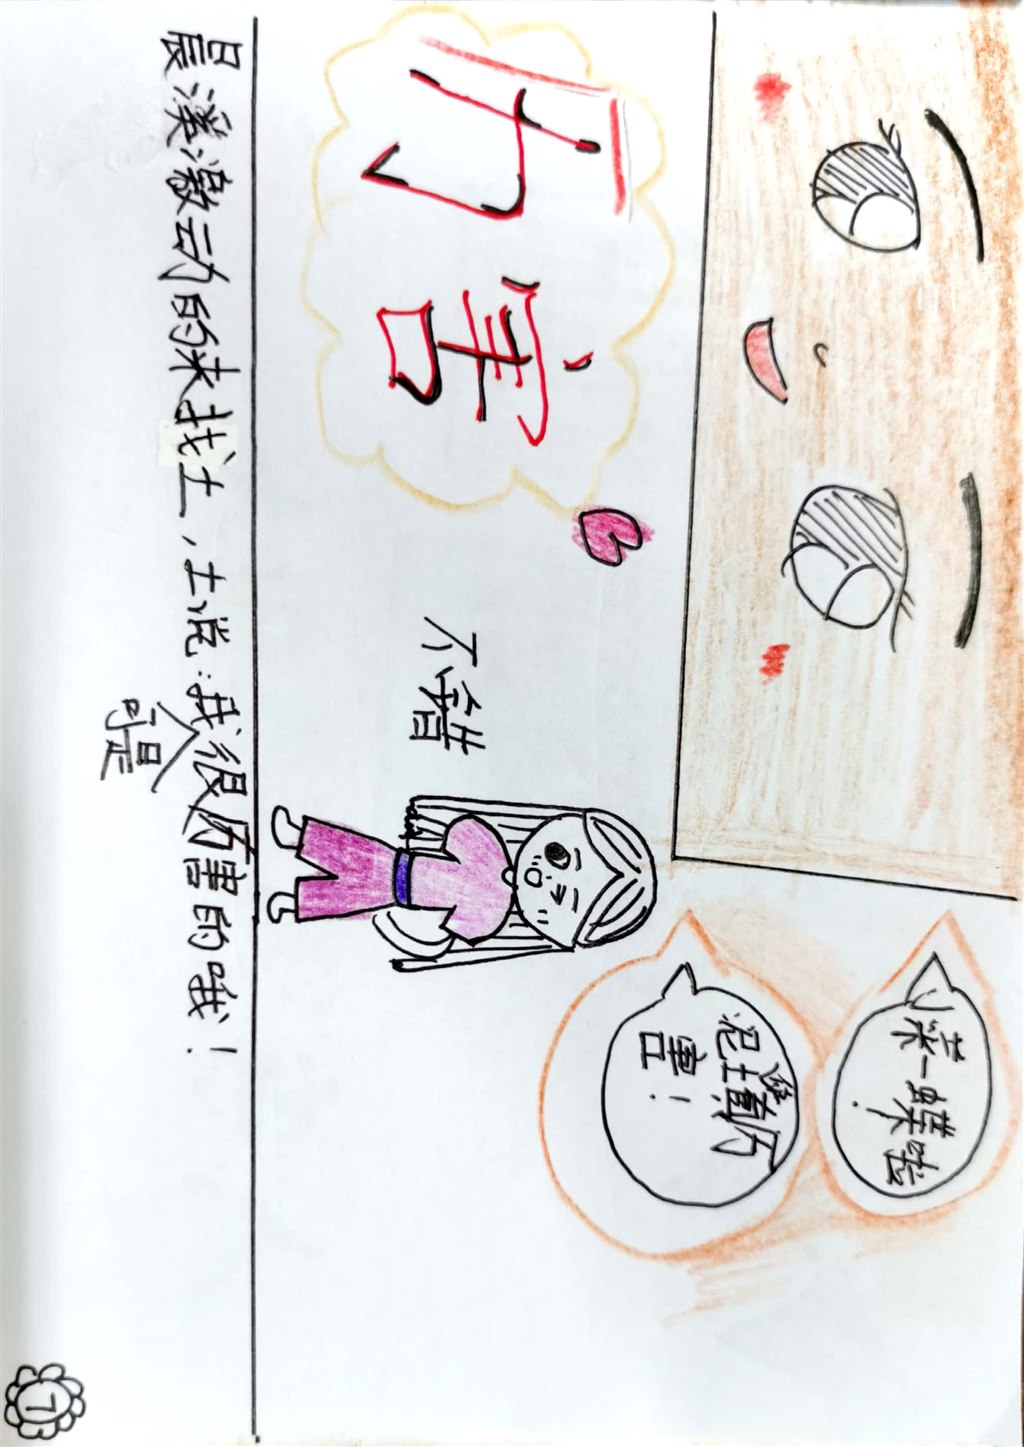 泥土真厉
害!
厉害
不错
晨溪激动的来找土,土说:我可是很厉害的哦!
7